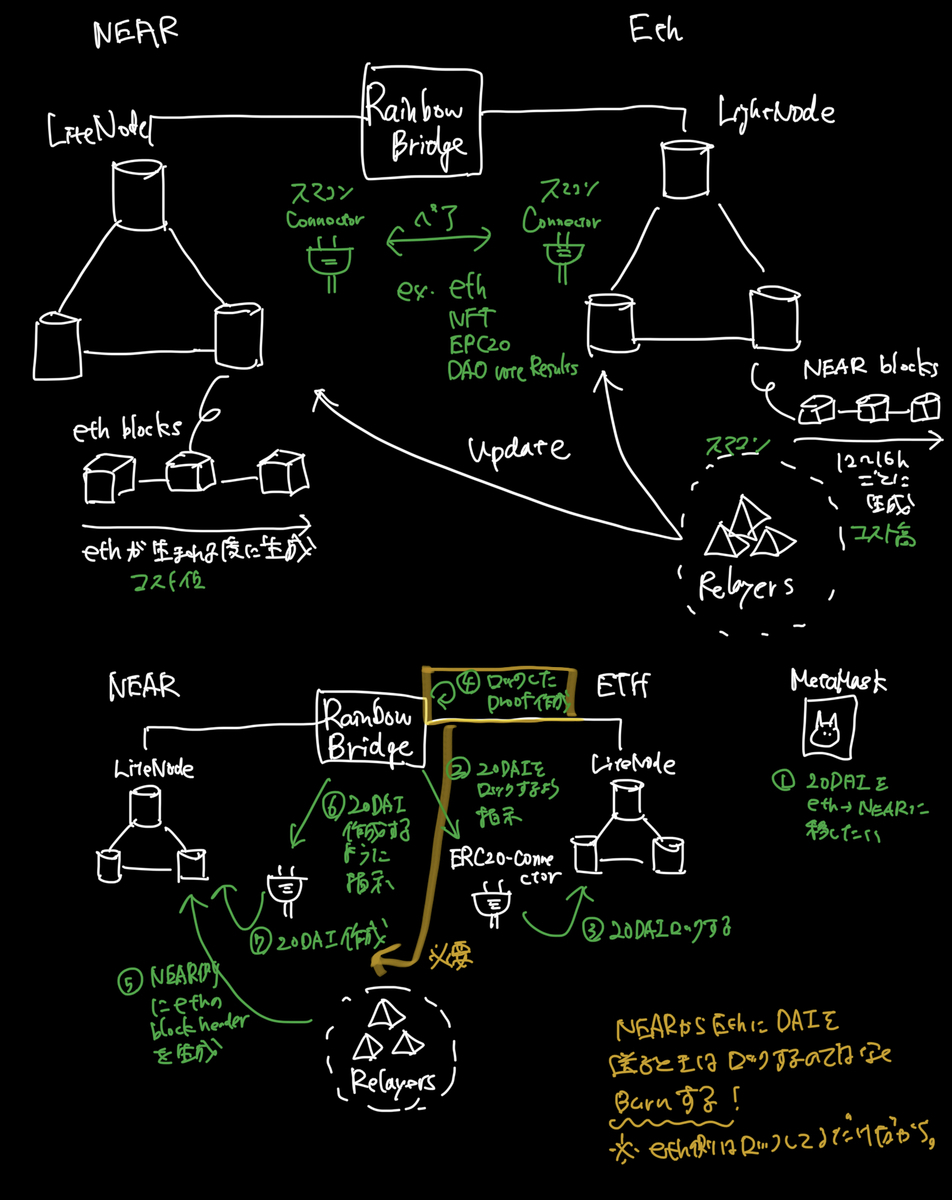 NEAR
Eth
Rainbow
Bridge
LiteNode
LightNode
スマコン
Connector
ペア
スマコン
Connector
ex. eth
NFT
EPC20
DAO vore Results
eth blocks
ethが生まれる度に生成
コスト低
Update
NEAR blocks
12〜16h
ごとに
生成
コスト高
スマコン
Relayers
NEAR
Rainbow
Bridge
ETH
MetaMask
④ ロックした
proof作成
LiteNode
LiteNode
① 20DAIを
eth→NEARに
移したい
② 20DAIを
ロックするよう
指示
⑥ 20DAI
作成する
ように
指示
ERC20-Conne
ctor
③ 20DAIロックする
⑦ 20DAI作成
必要
⑤ NEAR内
にethの
block header
を生成
Relayers
NEARからEthにDAIを
送るときは ロックするのではなく
Burnする!
※ eth側はロックしてるだけだから。